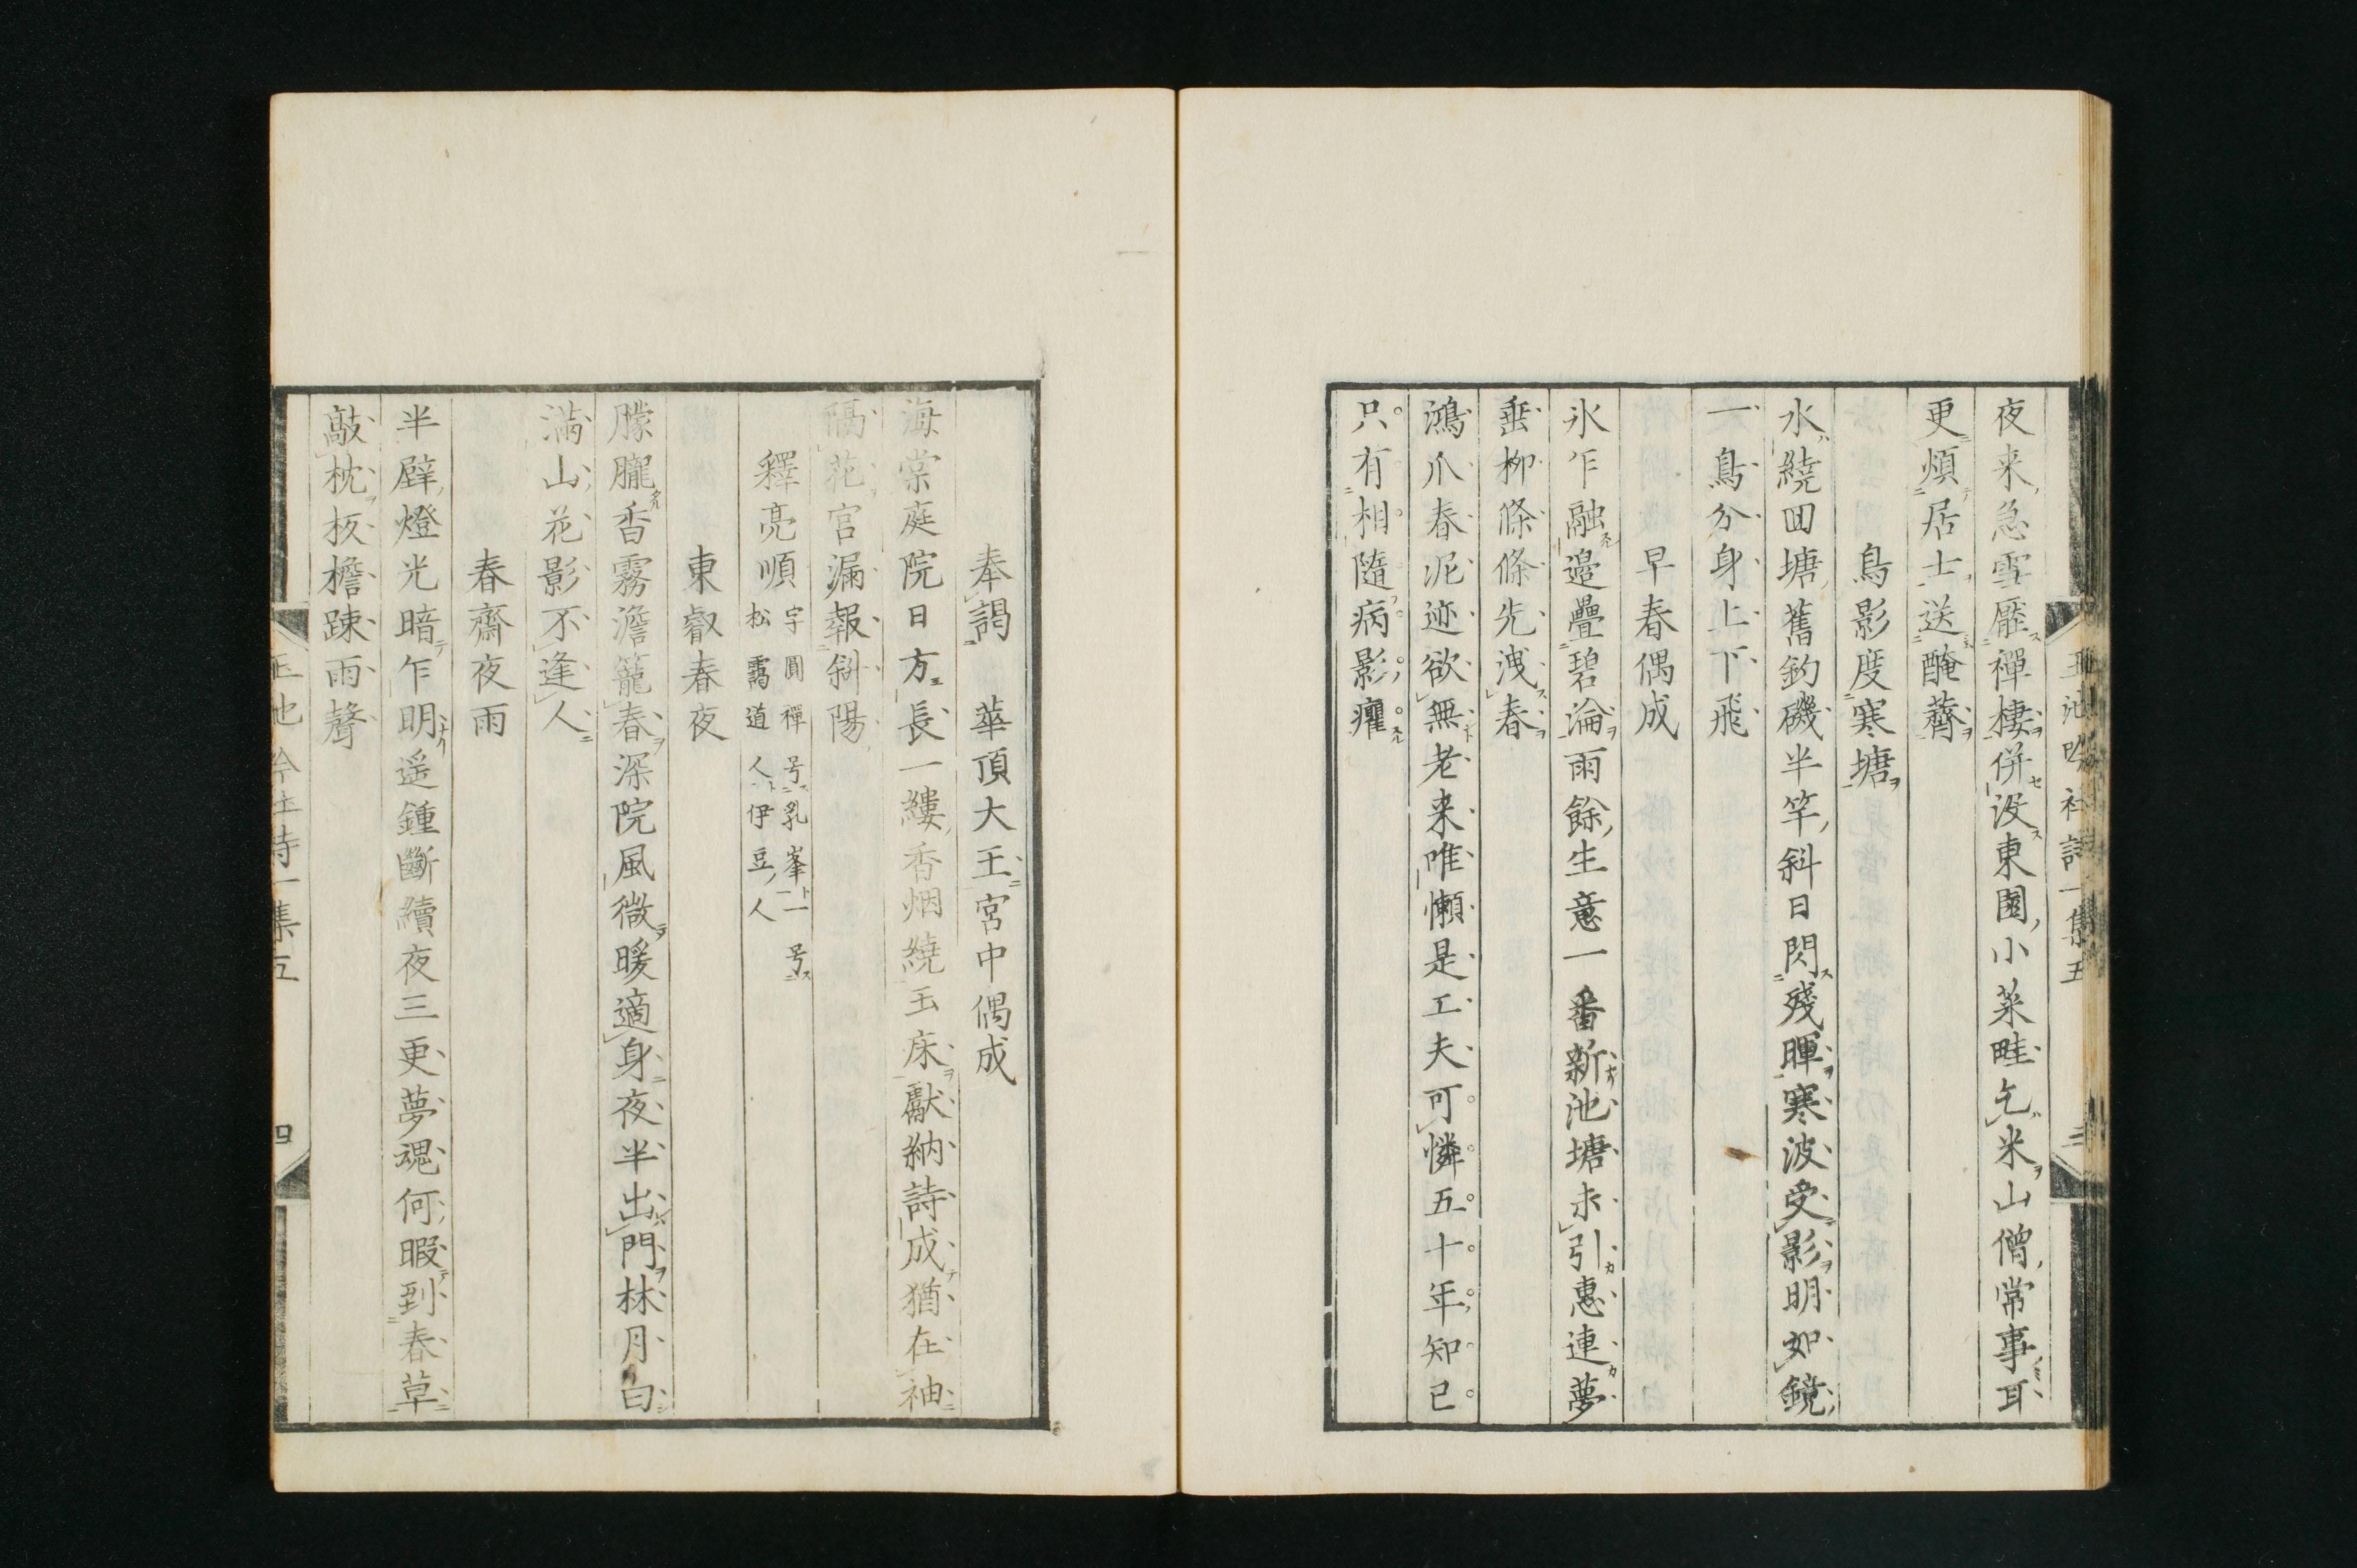 夜来急雪壓禪棲併没東園小菜畦乞米山僧常事耳
更煩居士送醃薺
鳥影度寒塘
水繞回塘舊釣磯半竿斜日閃殘暉寒波受影明如鏡
一鳥分身上下飛
早春偶成
氷乍融邉疊碧淪雨餘生意一番新池塘未引惠連夢
垂柳條條先洩春
鴻爪春泥迹欲無老来唯懶是工夫可憐五十年知已
只有相隨病影癯
玉池吟社詩一集五
三
奉謁 華頂大王宮中偶成
海棠庭院日方長一縷香烟繞玉床獻納詩成猶在袖
隔花宮漏報斜陽
釋亮順 字圓禪号乳峯一号
松靄道人伊豆人
東叡春夜
朦朧香霧澹籠春深院風微暖適身夜半出門林月白
滿山花影不逢人
春齋夜雨
半壁燈光暗乍明遥鍾斷續夜三更夢魂何暇到春草
敲枕板檐踈雨聲
玉池吟社詩一集五
四